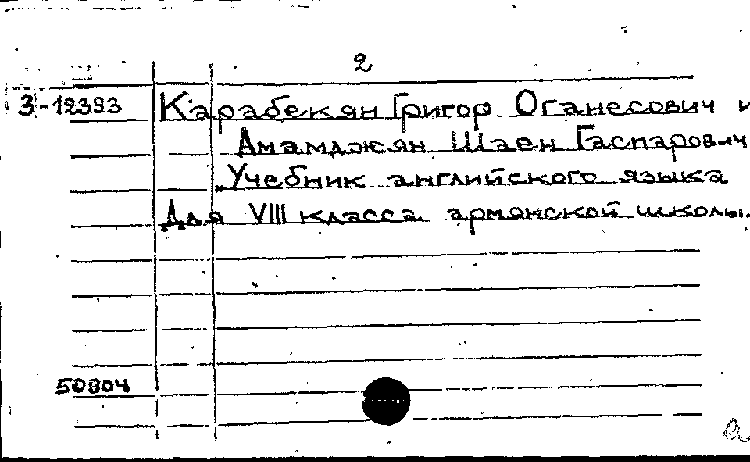 2
З-12393 Карабекян Григор Оганесович и
Амамджян Шаен Гаспарович
Учебник английского языка
Для VIII класса армянской школы.
50804